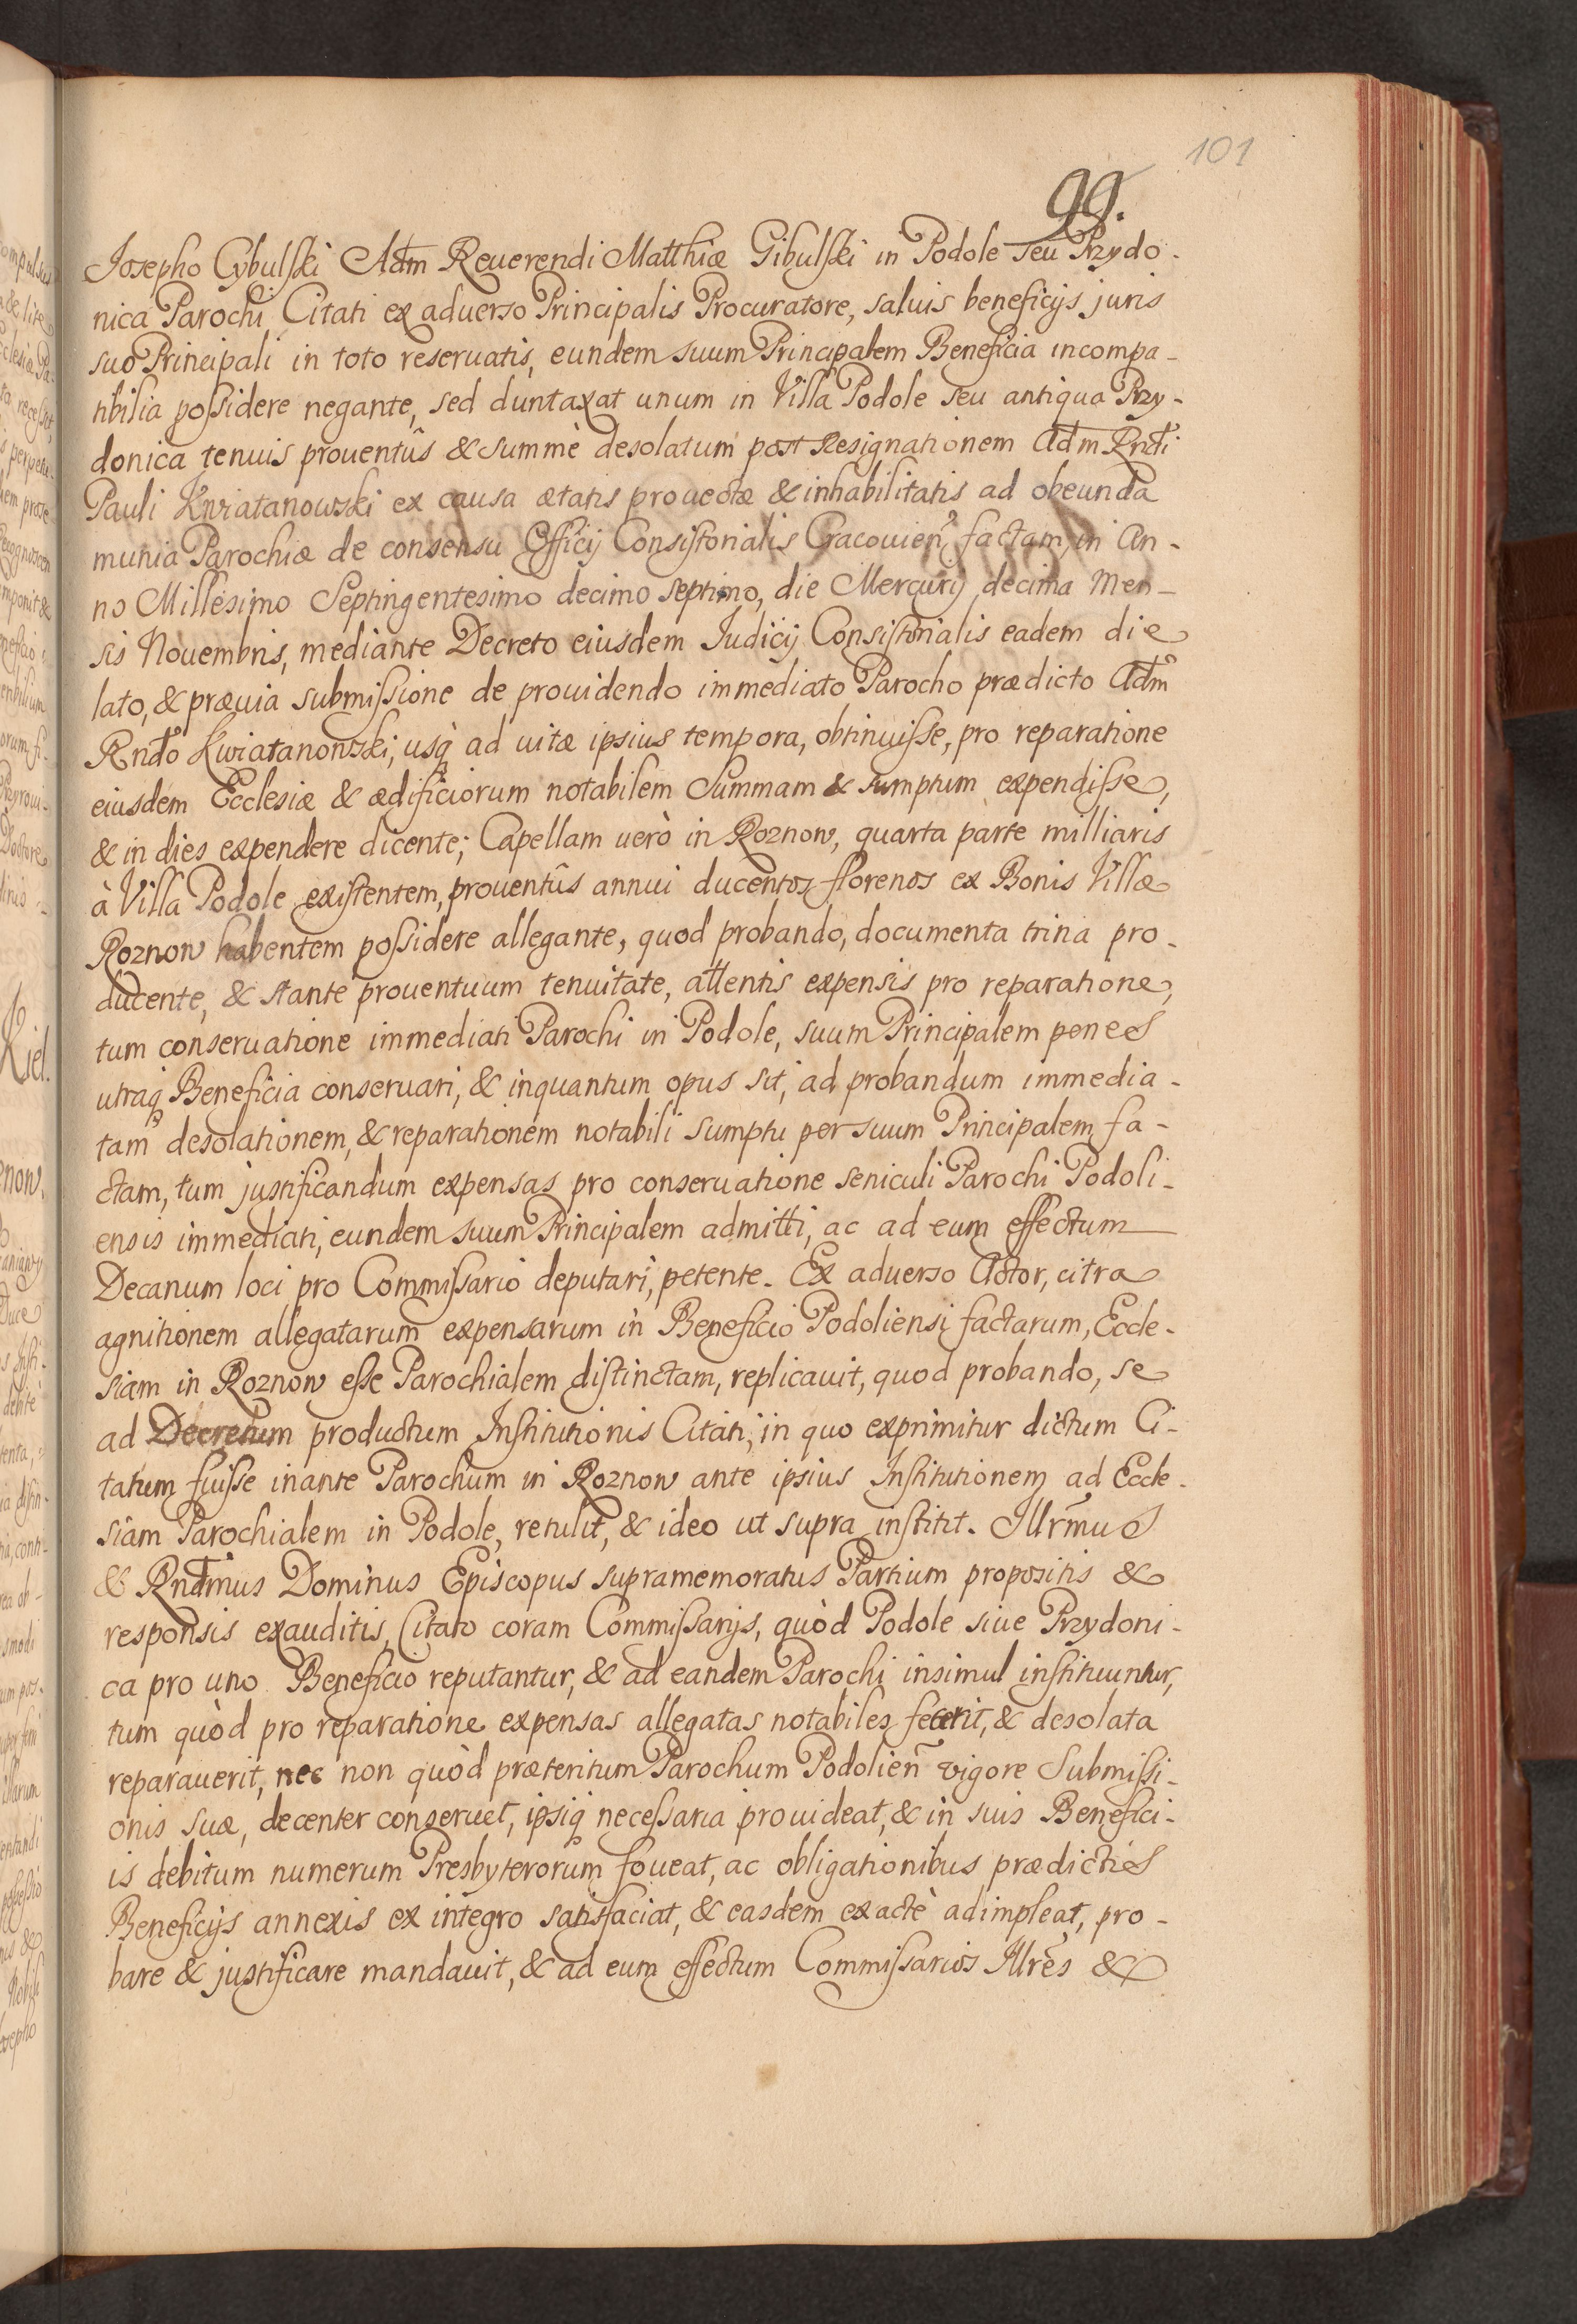 101
99.
Josepho Cybulski Adm Reuerendi Matthiæ Gibulski in Podole seu Przydo-
nica Parochi Citati ex aduerso Principalis Procuratore, saluis beneficijs juris
suo Principali in toto reseruatis, eundem suum Principalem Beneficia incompa-
tibilia possidere negante, sed duntaxat unum in Villa Podole seu antiqua Przy-
donica tenuis prouentûs & summè desolatum post Resignationem Adm Rndi
Pauli Kwiatanowski ex causa ætatis prouectæ & inhabilitatis ad obeunda
munia Parochiæ de consensu Officij Consistorialis Cracouien̄ factam, in An-
no Millesimo Septingentesimo decimo septimo, die Mercurij decima Men-
sis Nouembris, mediante Decreto eiusdem Iudicij Consistorialis eadem die
lato, & præuia submissione de prouidendo immediato Parocho prædicto Adm
Rndo Kwiatanowski, usq̨ ad uitæ ipsius tempora, obtinuisse, pro reparatione
eiusdem Ecclesiæ & ædificiorum notabilem Summam & sumptum expendisse,
& in dies expendere dicente; Capellam uerò in Roznow, quarta parte milliaris
à Villa Podole existentem, prouentûs annui ducentos florenos ex Bonis Villæ
Roznow habentem possidere allegante, quod probando, documenta trina pro-
ducente, & stante prouentuum tenuitate, attentis expensis pro reparatione,
tum conseruatione immediati Parochi in Podole, suum Principalem penes
utraq̨ Beneficia conseruari, & inquantum opus sit, ad probandum immedia-
tam desolationem, & reparationem notabili sumptu per suum Principalem fa-
ctam, tum justificandum expensas pro conseruatione seniculi Parochi Podoli-
ensis immediati, eundem suum Principalem admitti, ac ad eum effectum
Decanum loci pro Commissario deputari, petente. Ex aduerso Actor, citra
agnitionem allegatarum expensarum in Beneficio Podoliensi factarum, Eccle-
siam in Roznow esse Parochialem distinctam, replicauit, quod probando, se
ad Decretum productum Institutionis Citati, in quo exprimitur dictum Ci-
tatum fuisse inante Parochum in Roznow ante ipsius Institutionem ad Eccle-
siam Parochialem in Podole, retulit, & ideo ut supra institit. Illr̄mus
& Rndmus Dominus Episcopus supramemoratus Partium propositis &
responsis exauditis, Citato coram Commissarijs, quòd Podole siue Przydoni-
ca pro uno Beneficio reputantur, & ad eandem Parochi insimul instituuntur,
tum quòd pro reparatione expensas allegatas notabiles fecerit, & desolata
reparauerit, nec non quòd præteritum Parochum Podolien̄ vigore Submissi-
onis suæ, decenter conseruet, ipsiq̨ necessaria prouideat, & in suis Benefici-
is debitum numerum Presbyterorum foueat, ac obligationibus prædictis
Beneficijs annexis ex integro satisfaciat, & easdem exactè adimpleat, pro-
bare & justificare mandauit, & ad eum effectum Commissarios Illr̄es &